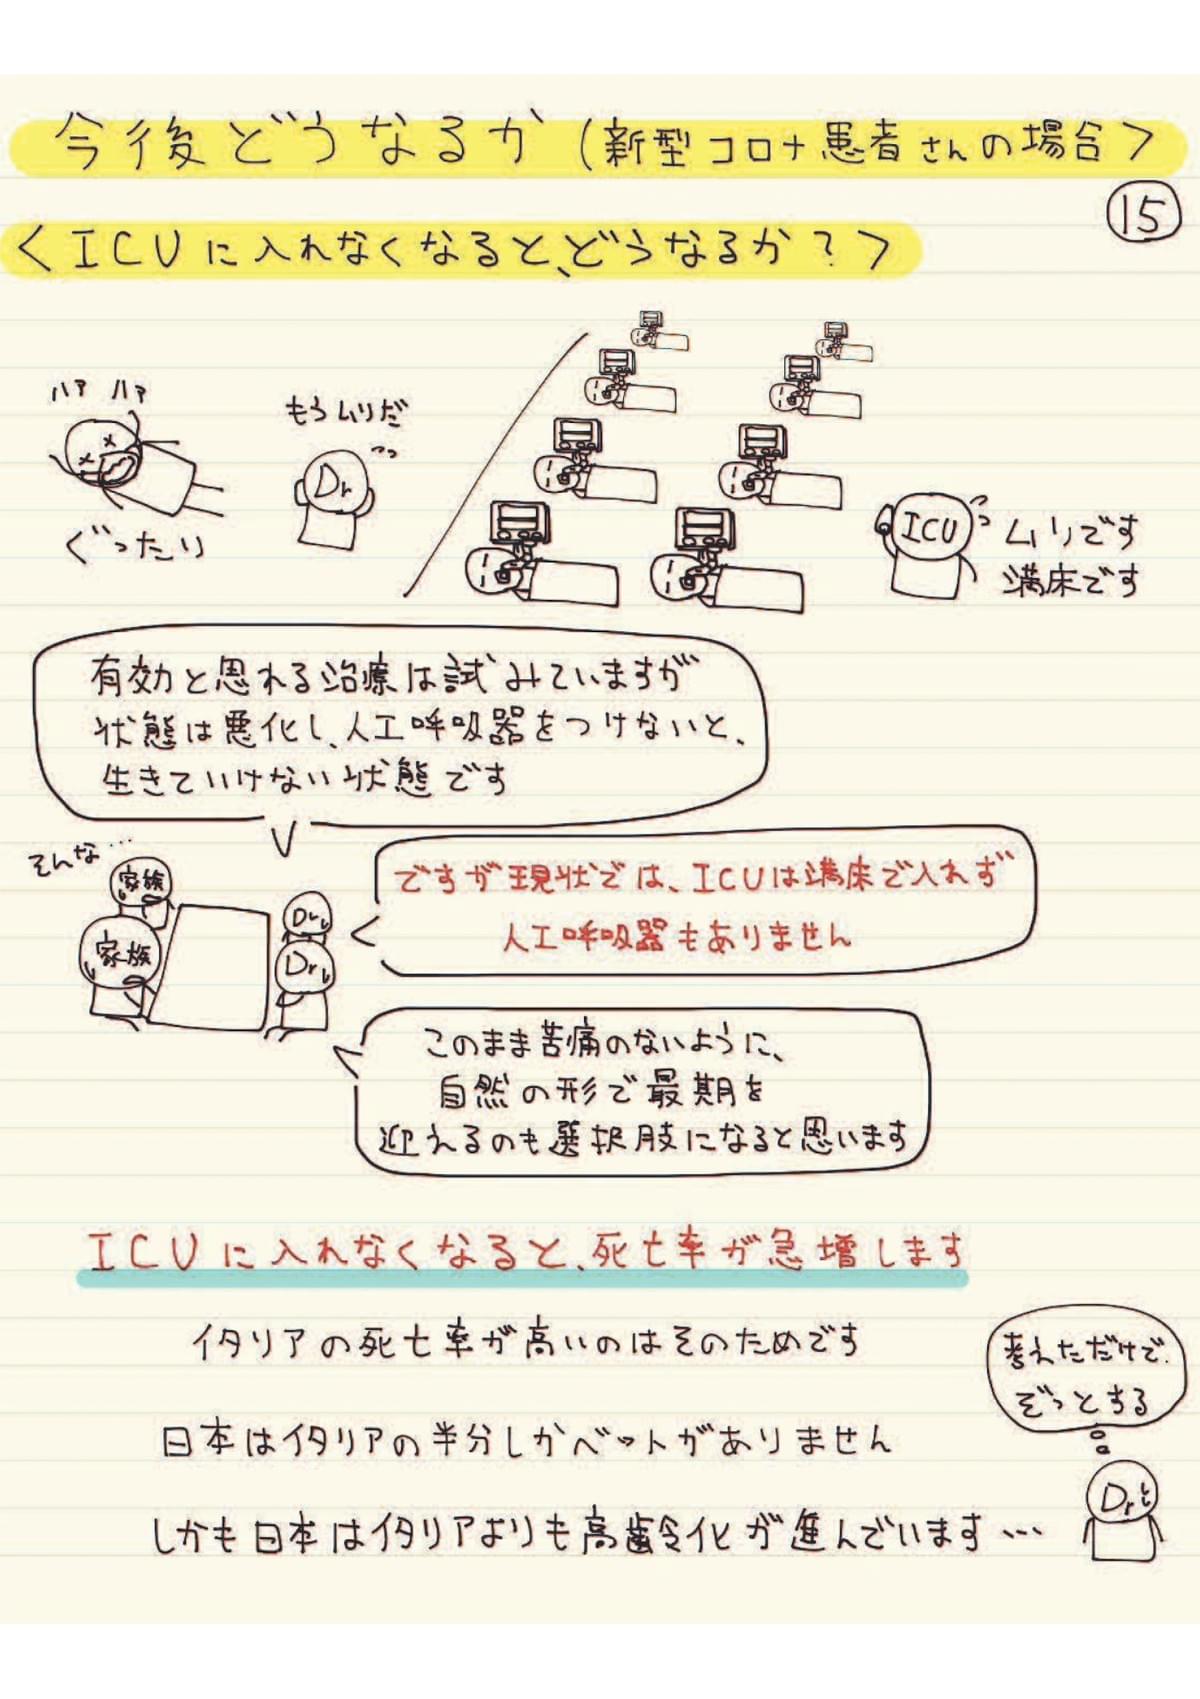 今後どうなるか(新型コロナ患者さんの場合>
⑮
<ICUに入れなくなると、どうなるか?>
ハァ ハァ
ぐったり
もうムリだ
Dr
ICU
ムリです
満床です
有効と思れる治療は試みていますが
状態は悪化し、人工呼吸器をつけないと、
生きていけない状態です
そんな…
家族
家族
Dr
Dr
ですが現状では、ICUは満床で入れず
人工呼吸器もありません
このまま苦痛のないように、
自然の形で最期を
迎えるのも選択肢になると思います
ICUに入れなくなると、死亡率が急増します
イタリアの死亡率が高いのはそのためです
日本はイタリアの半分しかベットがありません
しかも日本はイタリアよりも高齢化が進んでいます…
考えただけで
ぞっとする
Dr